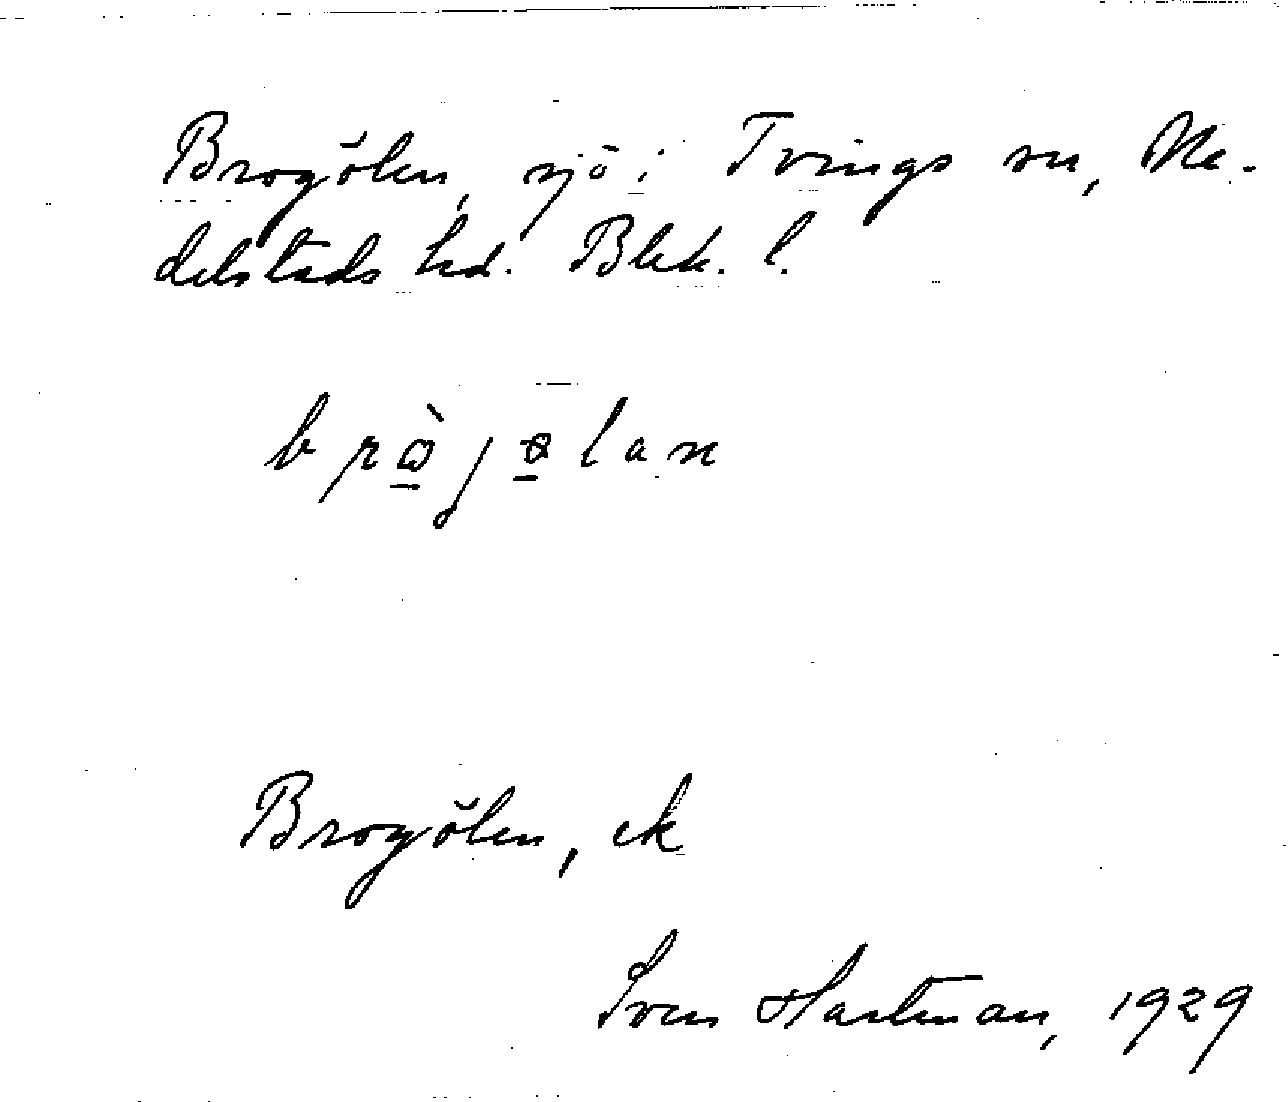 Brogölen, sjö i Tvings sn, Me-
delstads hd. Blek. l.
Brogölen, ek
Sven Hartman, 1929